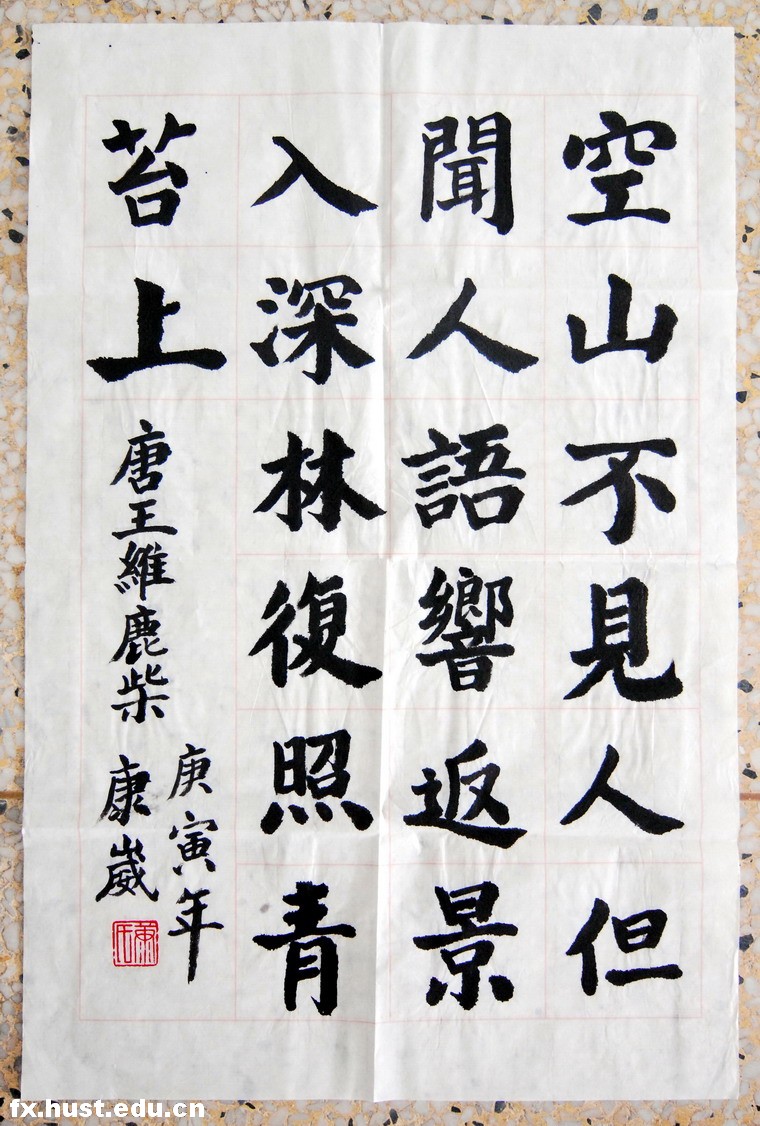 空山不見人但
聞人語響返景
入深林復照青
苔上
唐王維鹿柴
庚寅年
康崴
fx.hust.edu.cn